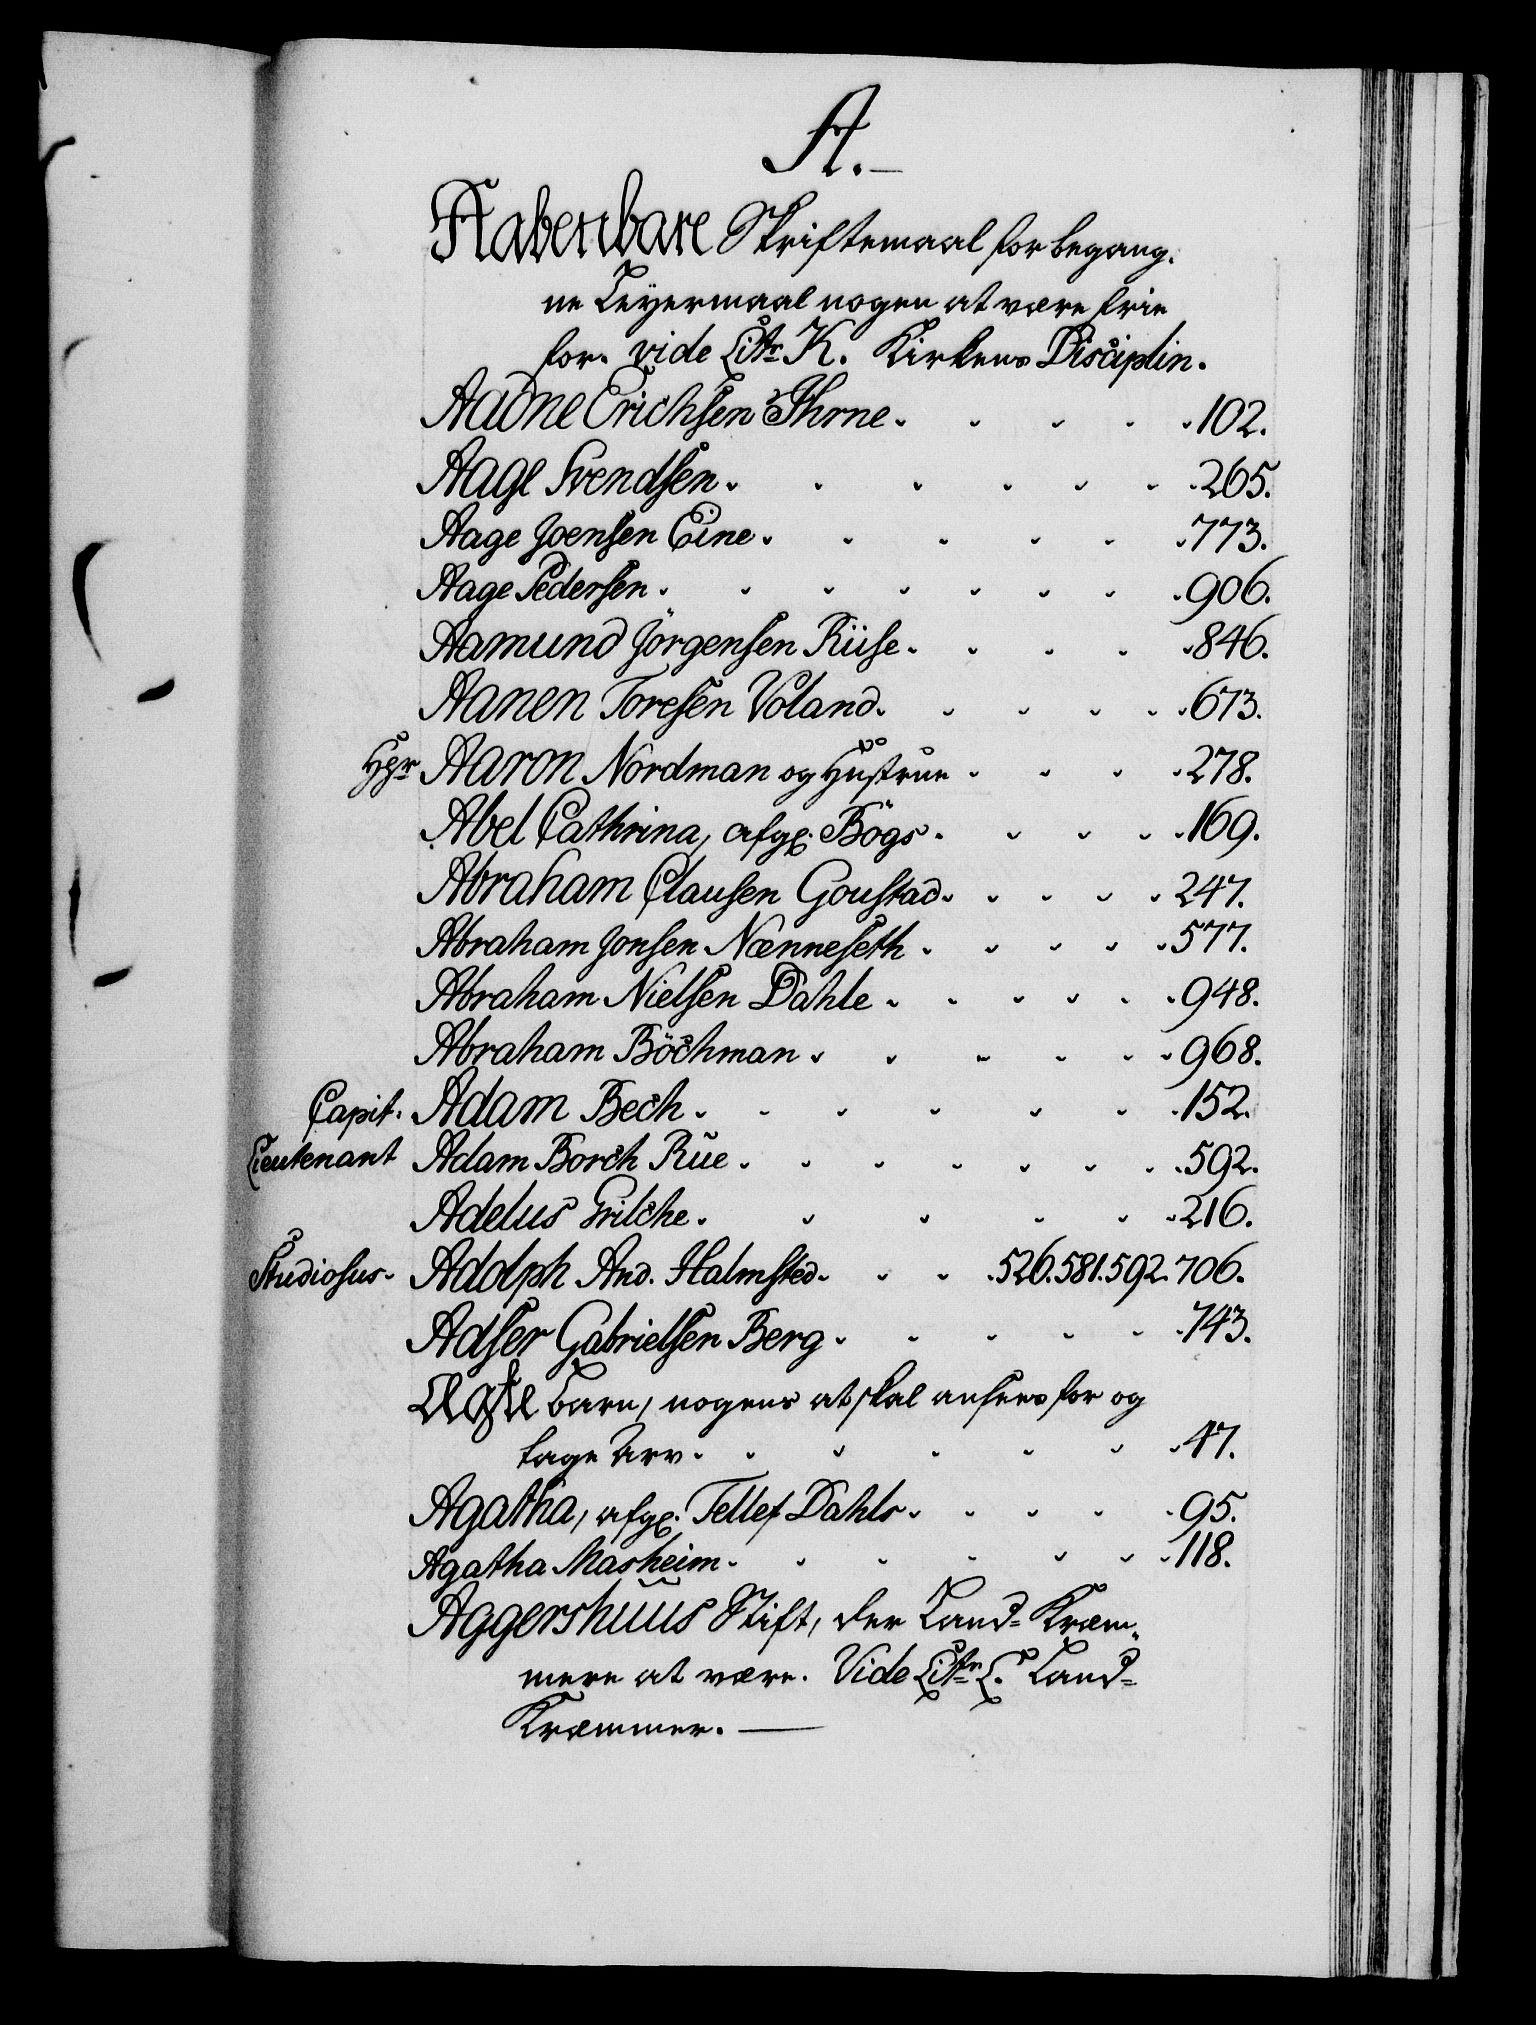 A.
Aabenbare Skriftemaal for begang-
ne Leyermaal nogen at være frie
for. vide Litr: K. Kirkens Disciplin.
Aadne Erichsen Thrne. 102.
Aage Svendsen. 265.
Aage Joensen Eine. 773.
Aage Pedersen. 906.
Aamund Jörgensen Riise. 846.
Aanen Toresen Voland. 673.
Hgr Aaron Nordman og Hustrue 278.
Abel Cathrina, afg: Bögs. 169.
Abraham Clausen Goustad. 247.
Abraham Jonsen Nænneseth. 577.
Abraham Nielsen Dahle. 948.
Abraham Böchman. 968.
Capit. Adam Bech. 152.
Lieutenant Adam Borch Rue. 592.
Adelus Grilche. 216.
Studiosus. Adolph And. Halmsted. 526. 581. 592. 706.
Adser Gabrielsen Berg. 743.
Ægte Barn, nogens at skal ansees for og
tage Arv. 47.
Agatha, afg: Tellef Dahls. 95.
Agatha Masheim. 118.
Aggershuus Stift, der Land- Kræm-
mere at være. Vide Litr: L. Land-
Kræmmer.